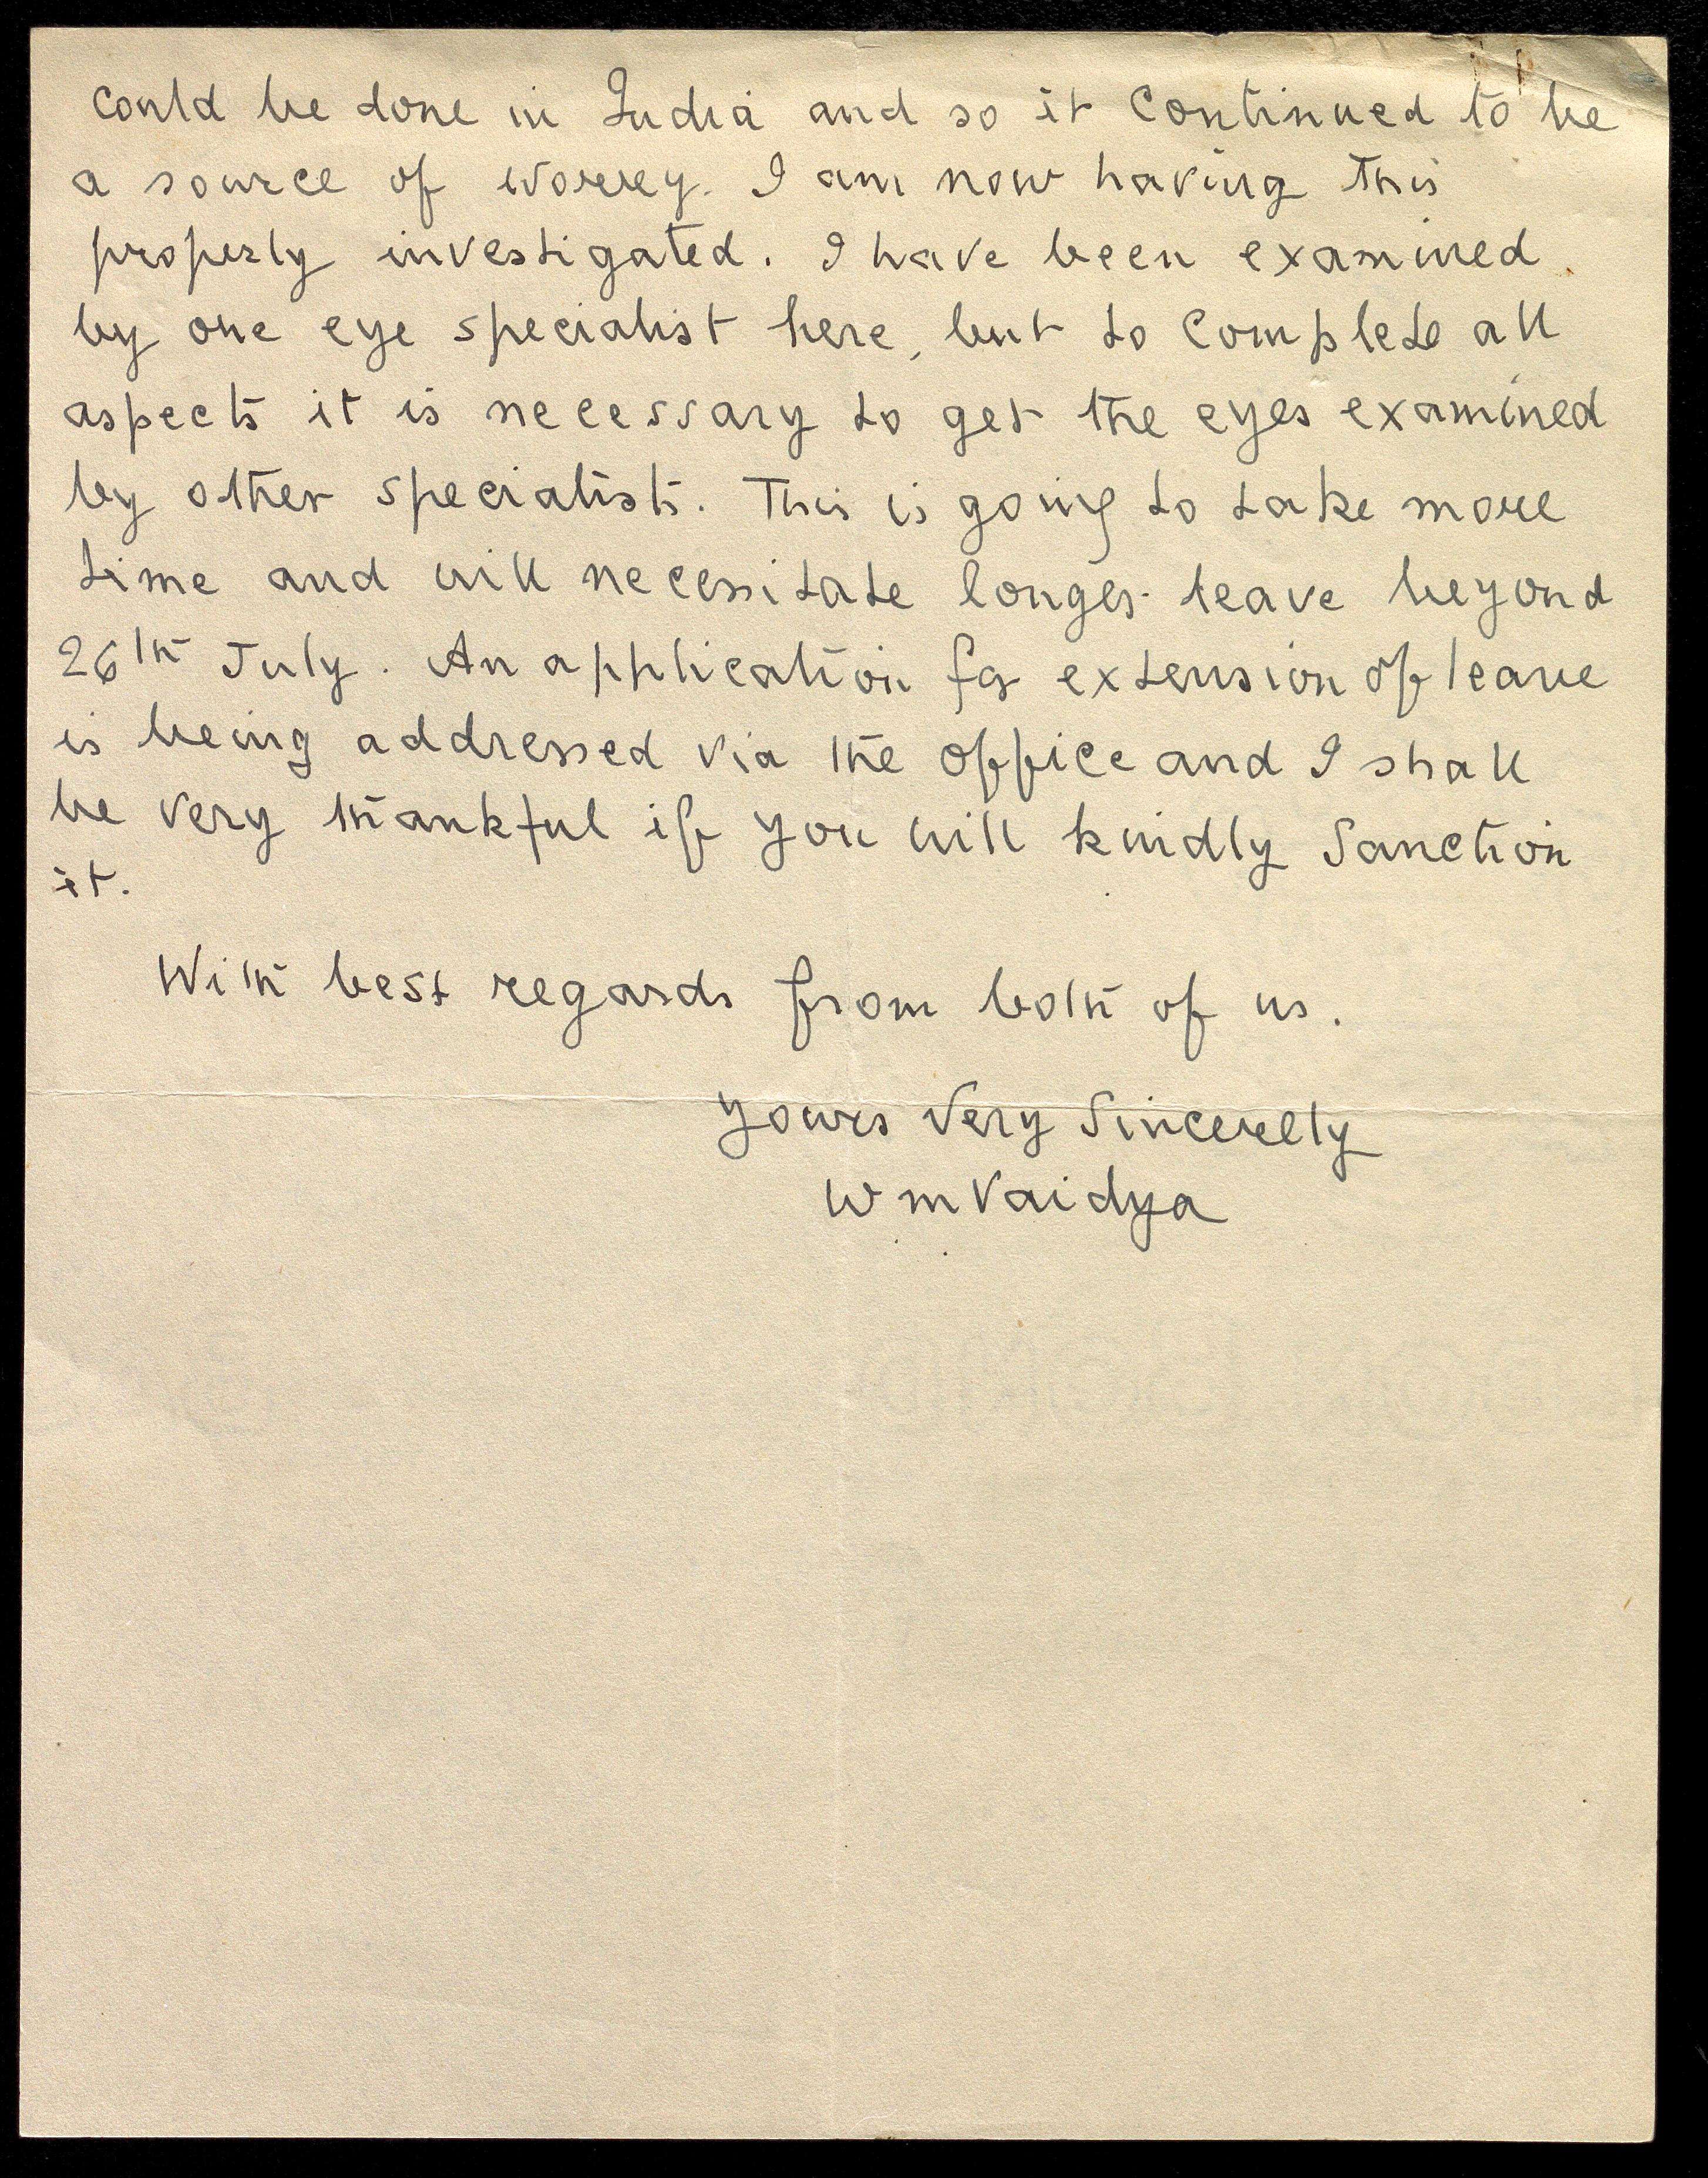 could be done in India and so it continued to be
a source of worrey. I am now having this
properly investigated. I have been examined
by one eye specialist here, but to complete all
aspects it is necessary to get the eyes examined
by other specialists. This is going to take more
time and will necessitate longer leave beyond
26th July. An application for extension of leave
is being addressed via the office and I shall
be very thankful if you will kindly sanction
it.
With best regards from both of us.
Yours very sincerely
W m Vaidya